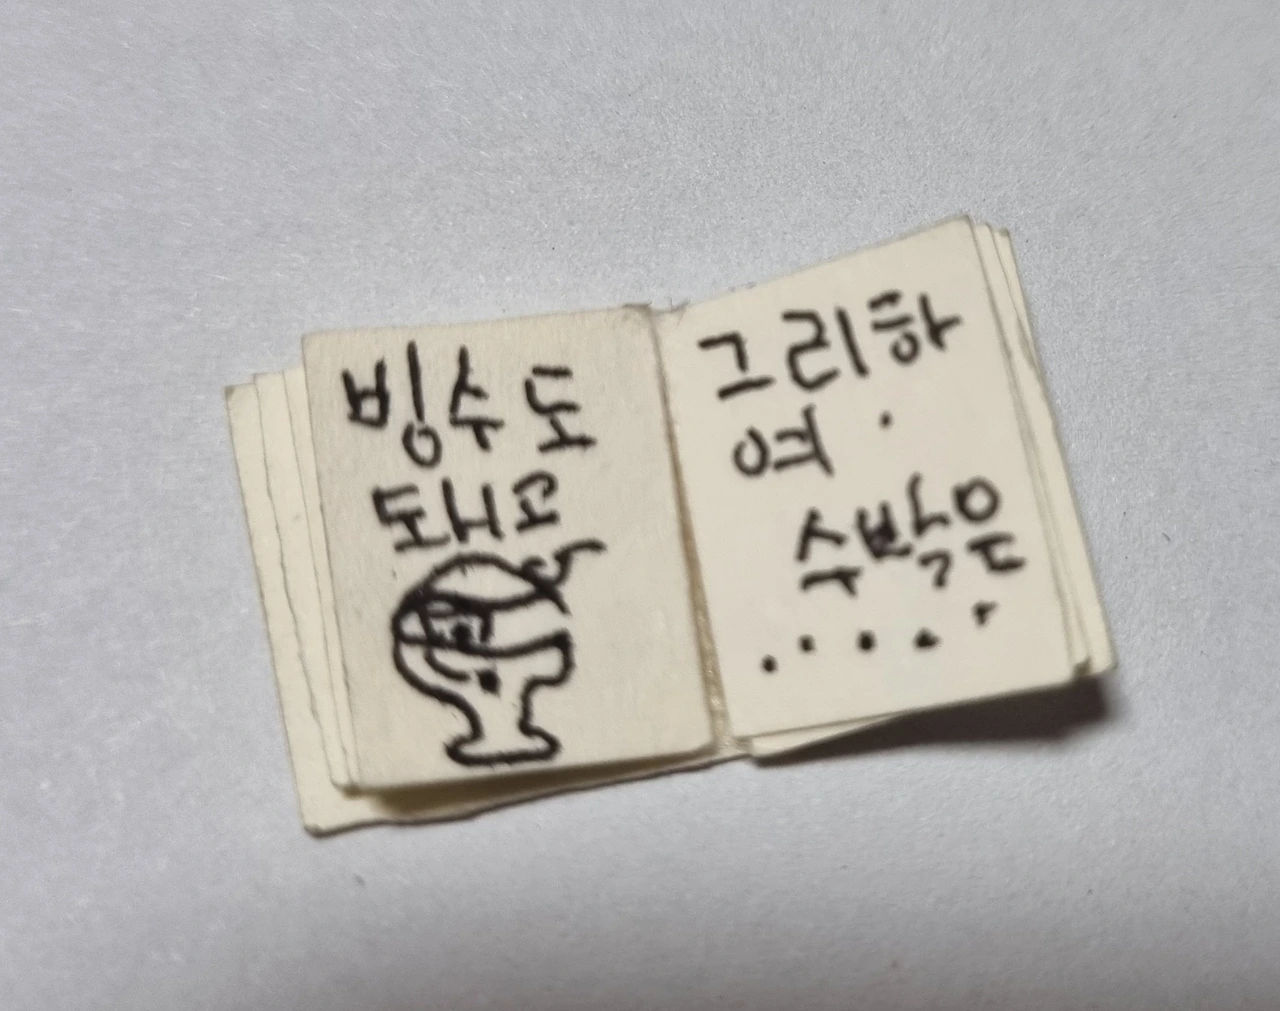 빙수도
되고
그리하
여.
수박은
.....